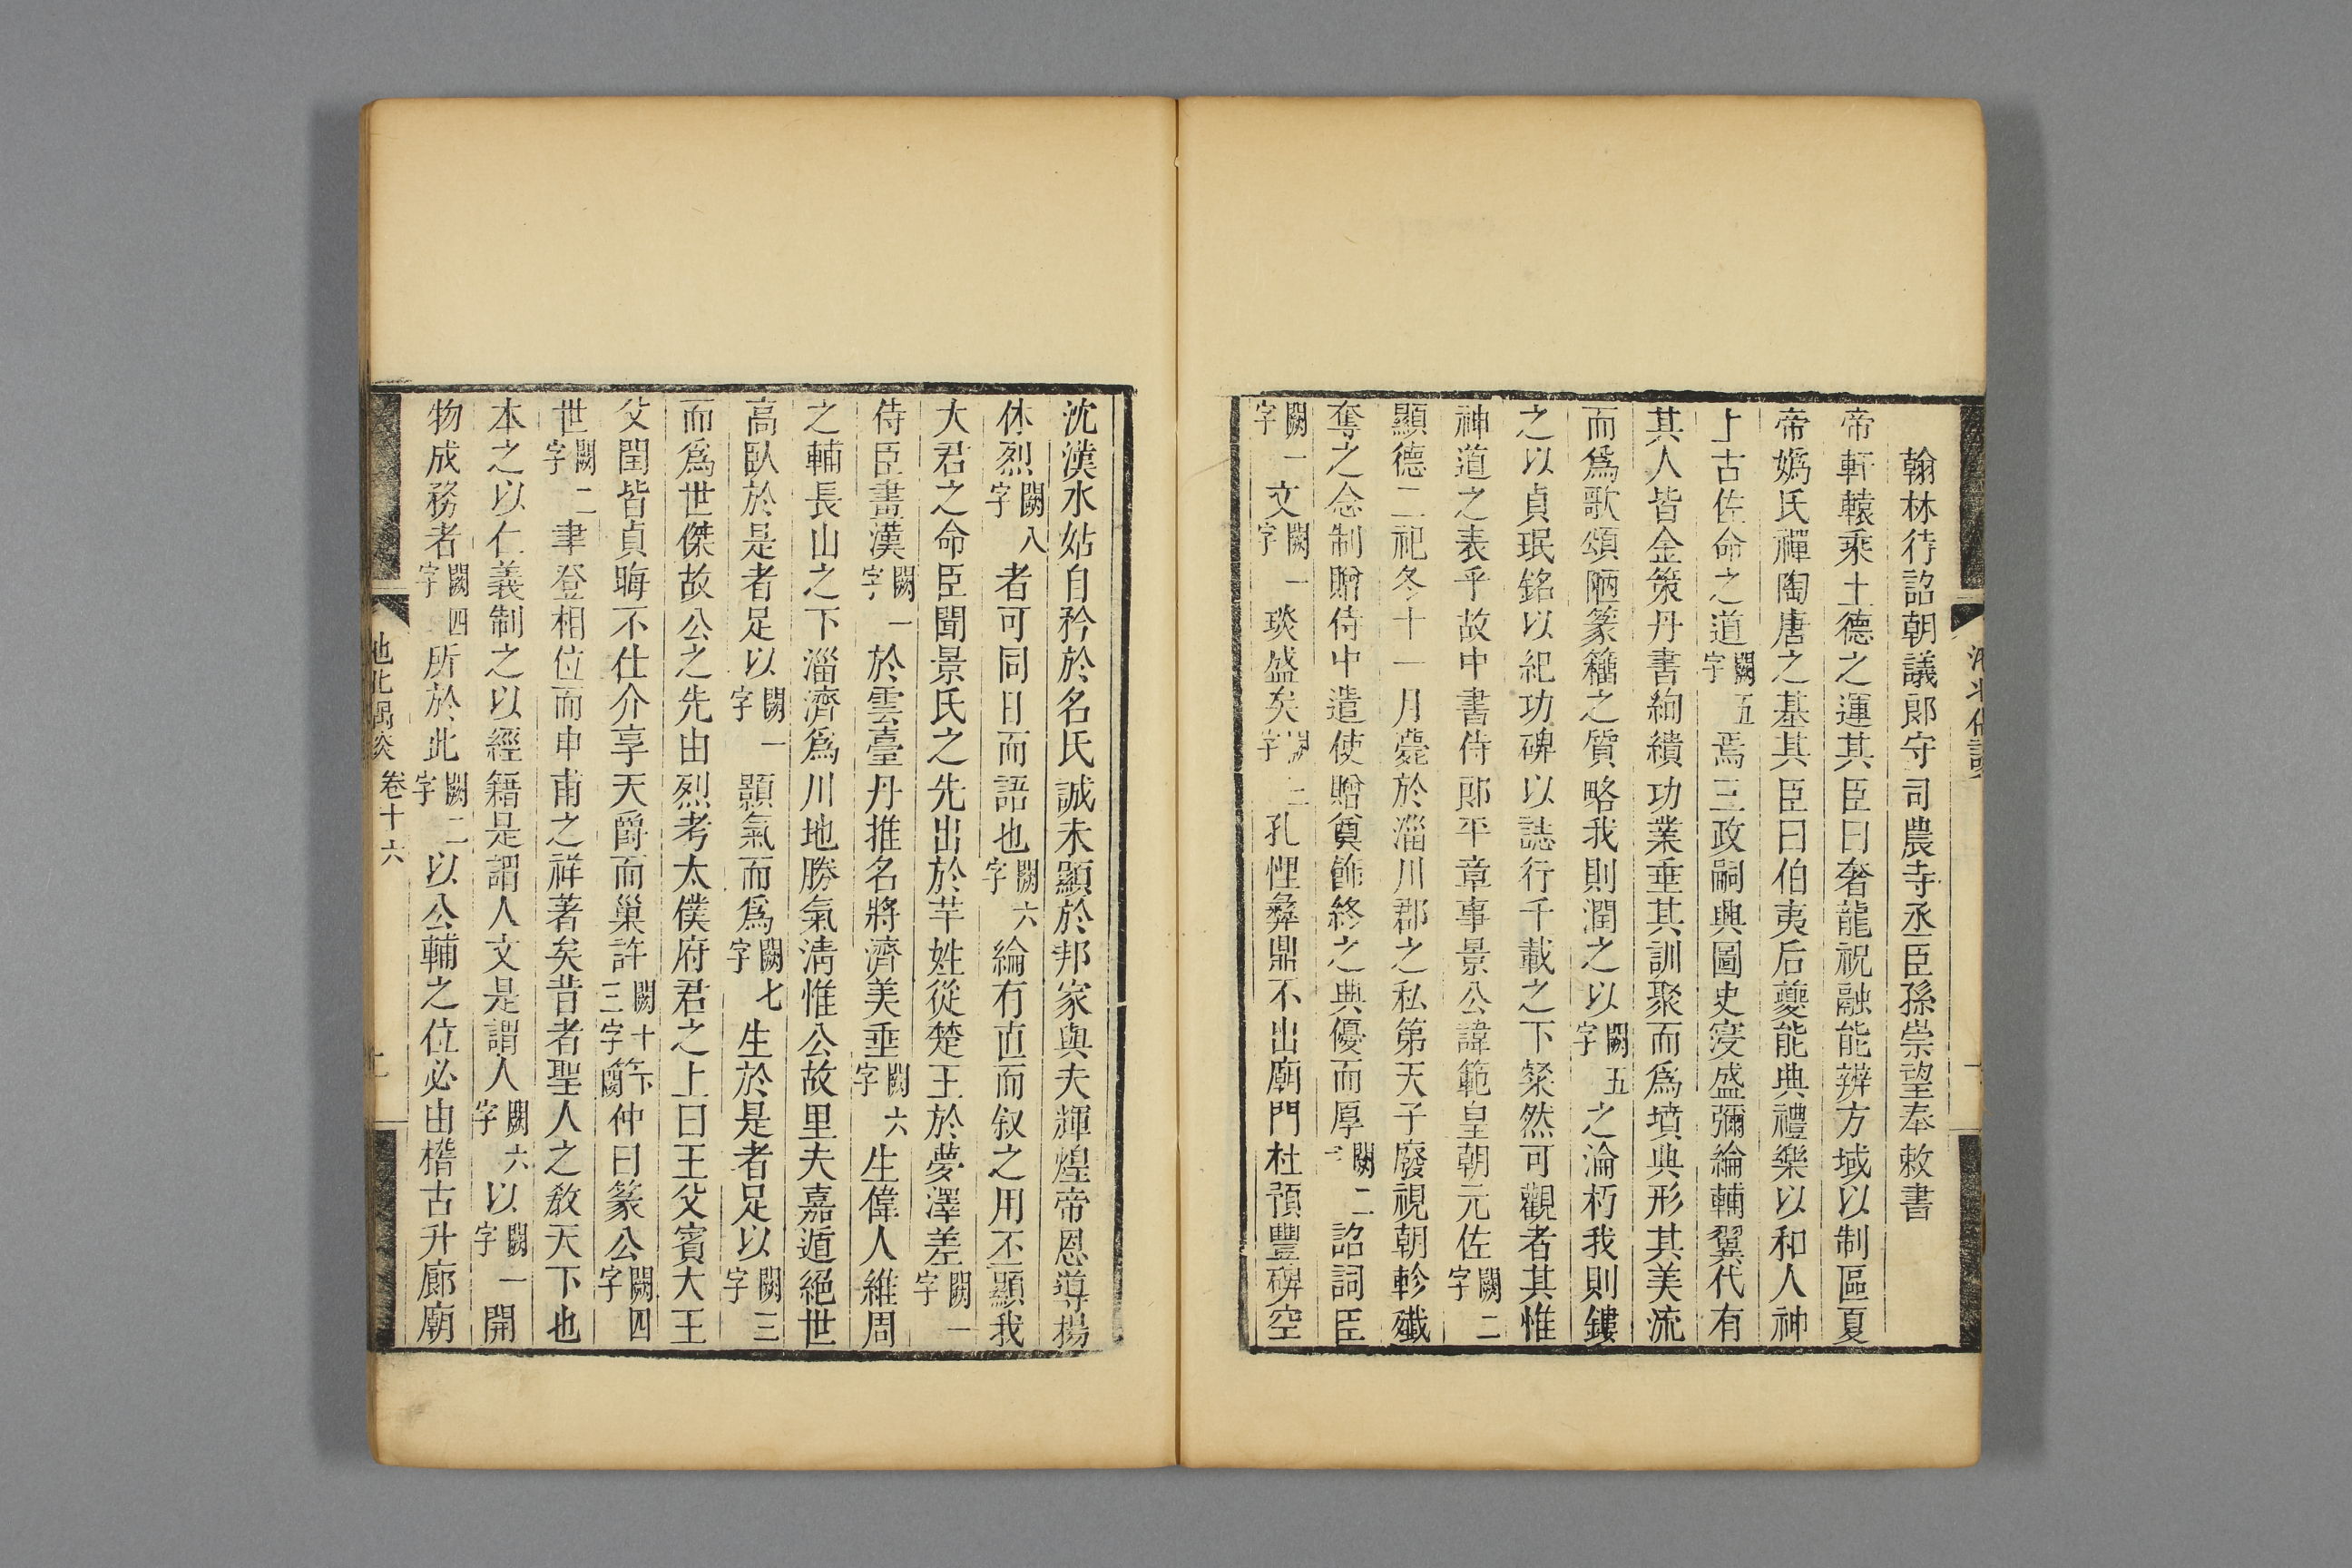 翰林待詔朝議郎守司農寺丞臣孫崇望奉敕書
帝軒轅乘土德之運其臣曰奢龍祝融能辨方域以制區夏
帝媯氏禪陶唐之基其臣曰伯夷后夔能典禮樂以和人神
上古佐命之道闕五字焉三政嗣興圖史寖盛彌綸輔翼代有
其人皆金策丹書絢績功業垂其訓聚而爲墳典形其美流
而爲歌頌陋篆籀之質略我則潤之以闕五字之淪朽我則鏤
之以貞珉銘以紀功碑以誌行千載之下粲然可觀者其惟
神道之表乎故中書侍郎平章事景公諱範皇朝元佐闕二字
顯德二祀冬十一月薨於淄川郡之私第天子廢視朝軫殲
奪之念制贈侍中遣使贈奠飾終之典優而厚闕二字詔詞臣
闕一字文闕一字琰盛矣闕二字孔悝彝鼎不出廟門杜預豐碑空
沈漢水姑自矜於名氏誠未顯於邦家與夫輝煌帝恩導揚
休烈闕八字者可同日而語也闕六字綸有直而叙之用丕顯我
大君之命臣聞景氏之先出於芊姓從楚王於夢澤差闕一字
侍臣畫漢闕一字於雲臺丹推名將濟美垂闕六字生偉人維周
之輔長山之下淄濟爲川地勝氣淸惟公故里夫嘉遁絕世
高臥於是者足以闕一字顥氣而爲闕七字生於是者足以闕三字
而爲世傑故公之先由烈考太僕府君之上曰王父賓大王
父閏皆貞晦不仕介享天爵而巢許闕十三字下闕仲曰篆公闕四字
世闕二字聿登相位而申甫之祥著矣昔者聖人之敎天下也
本之以仁義制之以經籍是謂人文是謂人闕六字以闕一字開
物成務者闕四字所於此闕二字以公輔之位必由楷古升廊廟
池北偶談 卷十六